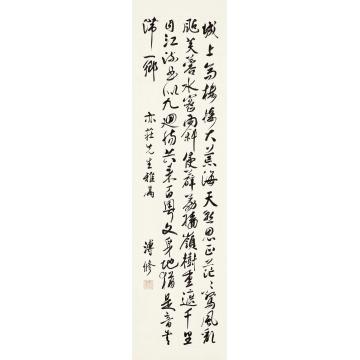 城上高樓接大荒海天愁思正茫〻驚風亂
颭芙蓉水密雨斜侵薜荔牆嶺樹重遮千里
目江流曲似九迴腸共來百粵文身地猶是音書
滯一鄉
亦莊先生雅屬
溥修